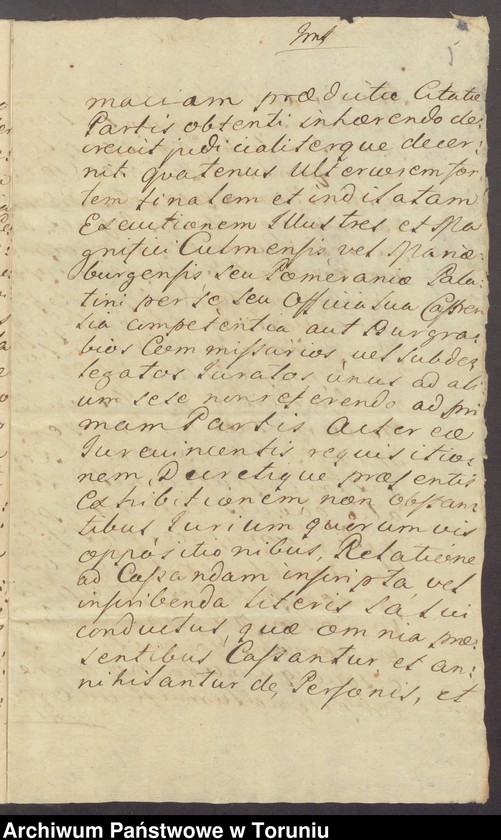 maciam prædictæ Citatæ
Partis obtenti inhærendo de„
crevit judicialiterque decer„
nit quatenus Ulteriorem for„
tem finalem et indilatam
Executionem Illustres et Ma
gnifici Culmensis vel Mariæ„
burgensis seu Pomeraniæ Pala„
tini per se seu Officia sua Castren„
sia competentia aut Burgra„
bios Commissarios vel Subde„
legatos Juratos unus ad ali
um sese non referendo ad pri
mam Partis Actoreæ
Jurevincentis requisitio„
nem, Decretique præsentis
Exhibitionem non obstan„
tibus Jurium quorumvis
oppositionibus, Relatione
ad Cassandam inscripta vel
inscribenda literis salvi
conductus, quæ omnia præ„
sentibus Cassantur et an„
nihilantur de Personis, et
Archiwum Państwowe w Toruniu